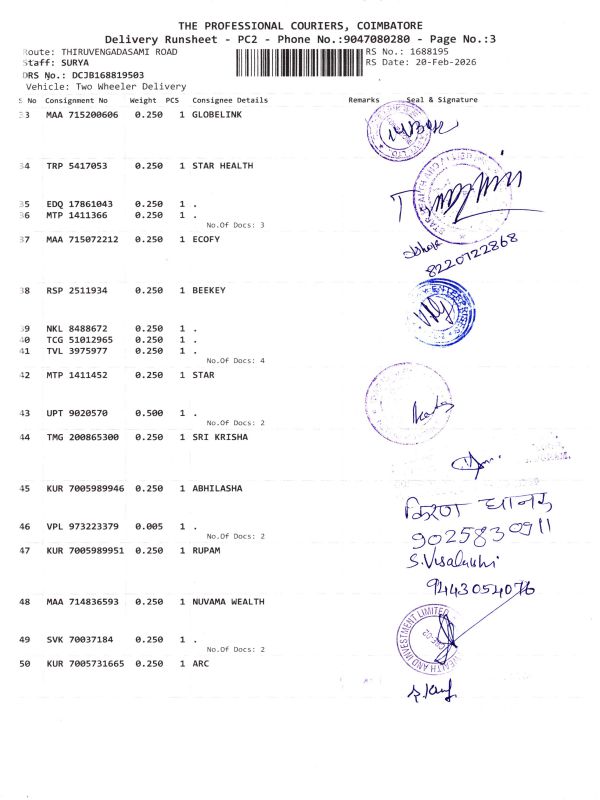 THE PROFESSIONAL COURIERS, COIMBATORE
Delivery Runsheet - PC2 - Phone No.:9047080280 - Page No.:3
Route: THIRUVENGADASAMI ROAD RS No.: 1688195
Staff: SURYA RS Date: 20-Feb-2026
DRS No.: DCJB168819503
Vehicle: Two Wheeler Delivery
S No Consignment No Weight PCS Consignee Details Remarks Seal & Signature
33 MAA 715200606 0.250 1 GLOBELINK
34 TRP 5417053 0.250 1 STAR HEALTH
35 EDQ 17861043 0.250 1 .
36 MTP 1411366 0.250 1 .
No.Of Docs: 3
37 MAA 715072212 0.250 1 ECOFY
8220722868
38 RSP 2511934 0.250 1 BEEKEY
39 NKL 8488672 0.250 1 .
40 TCG 51012965 0.250 1 .
41 TVL 3975977 0.250 1 .
No.Of Docs: 4
42 MTP 1411452 0.250 1 STAR
43 UPT 9020570 0.500 1 .
No.Of Docs: 2
44 TMG 200865300 0.250 1 SRI KRISHA
45 KUR 7005989946 0.250 1 ABHILASHA
किरण
9025830911
46 VPL 973223379 0.005 1 .
No.Of Docs: 2
47 KUR 7005989951 0.250 1 RUPAM
S.Visalakshi
9443054076
48 MAA 714836593 0.250 1 NUVAMA WEALTH
WEALTH AND INVESTMENT LIMITED
49 SVK 70037184 0.250 1 .
No.Of Docs: 2
50 KUR 7005731665 0.250 1 ARC